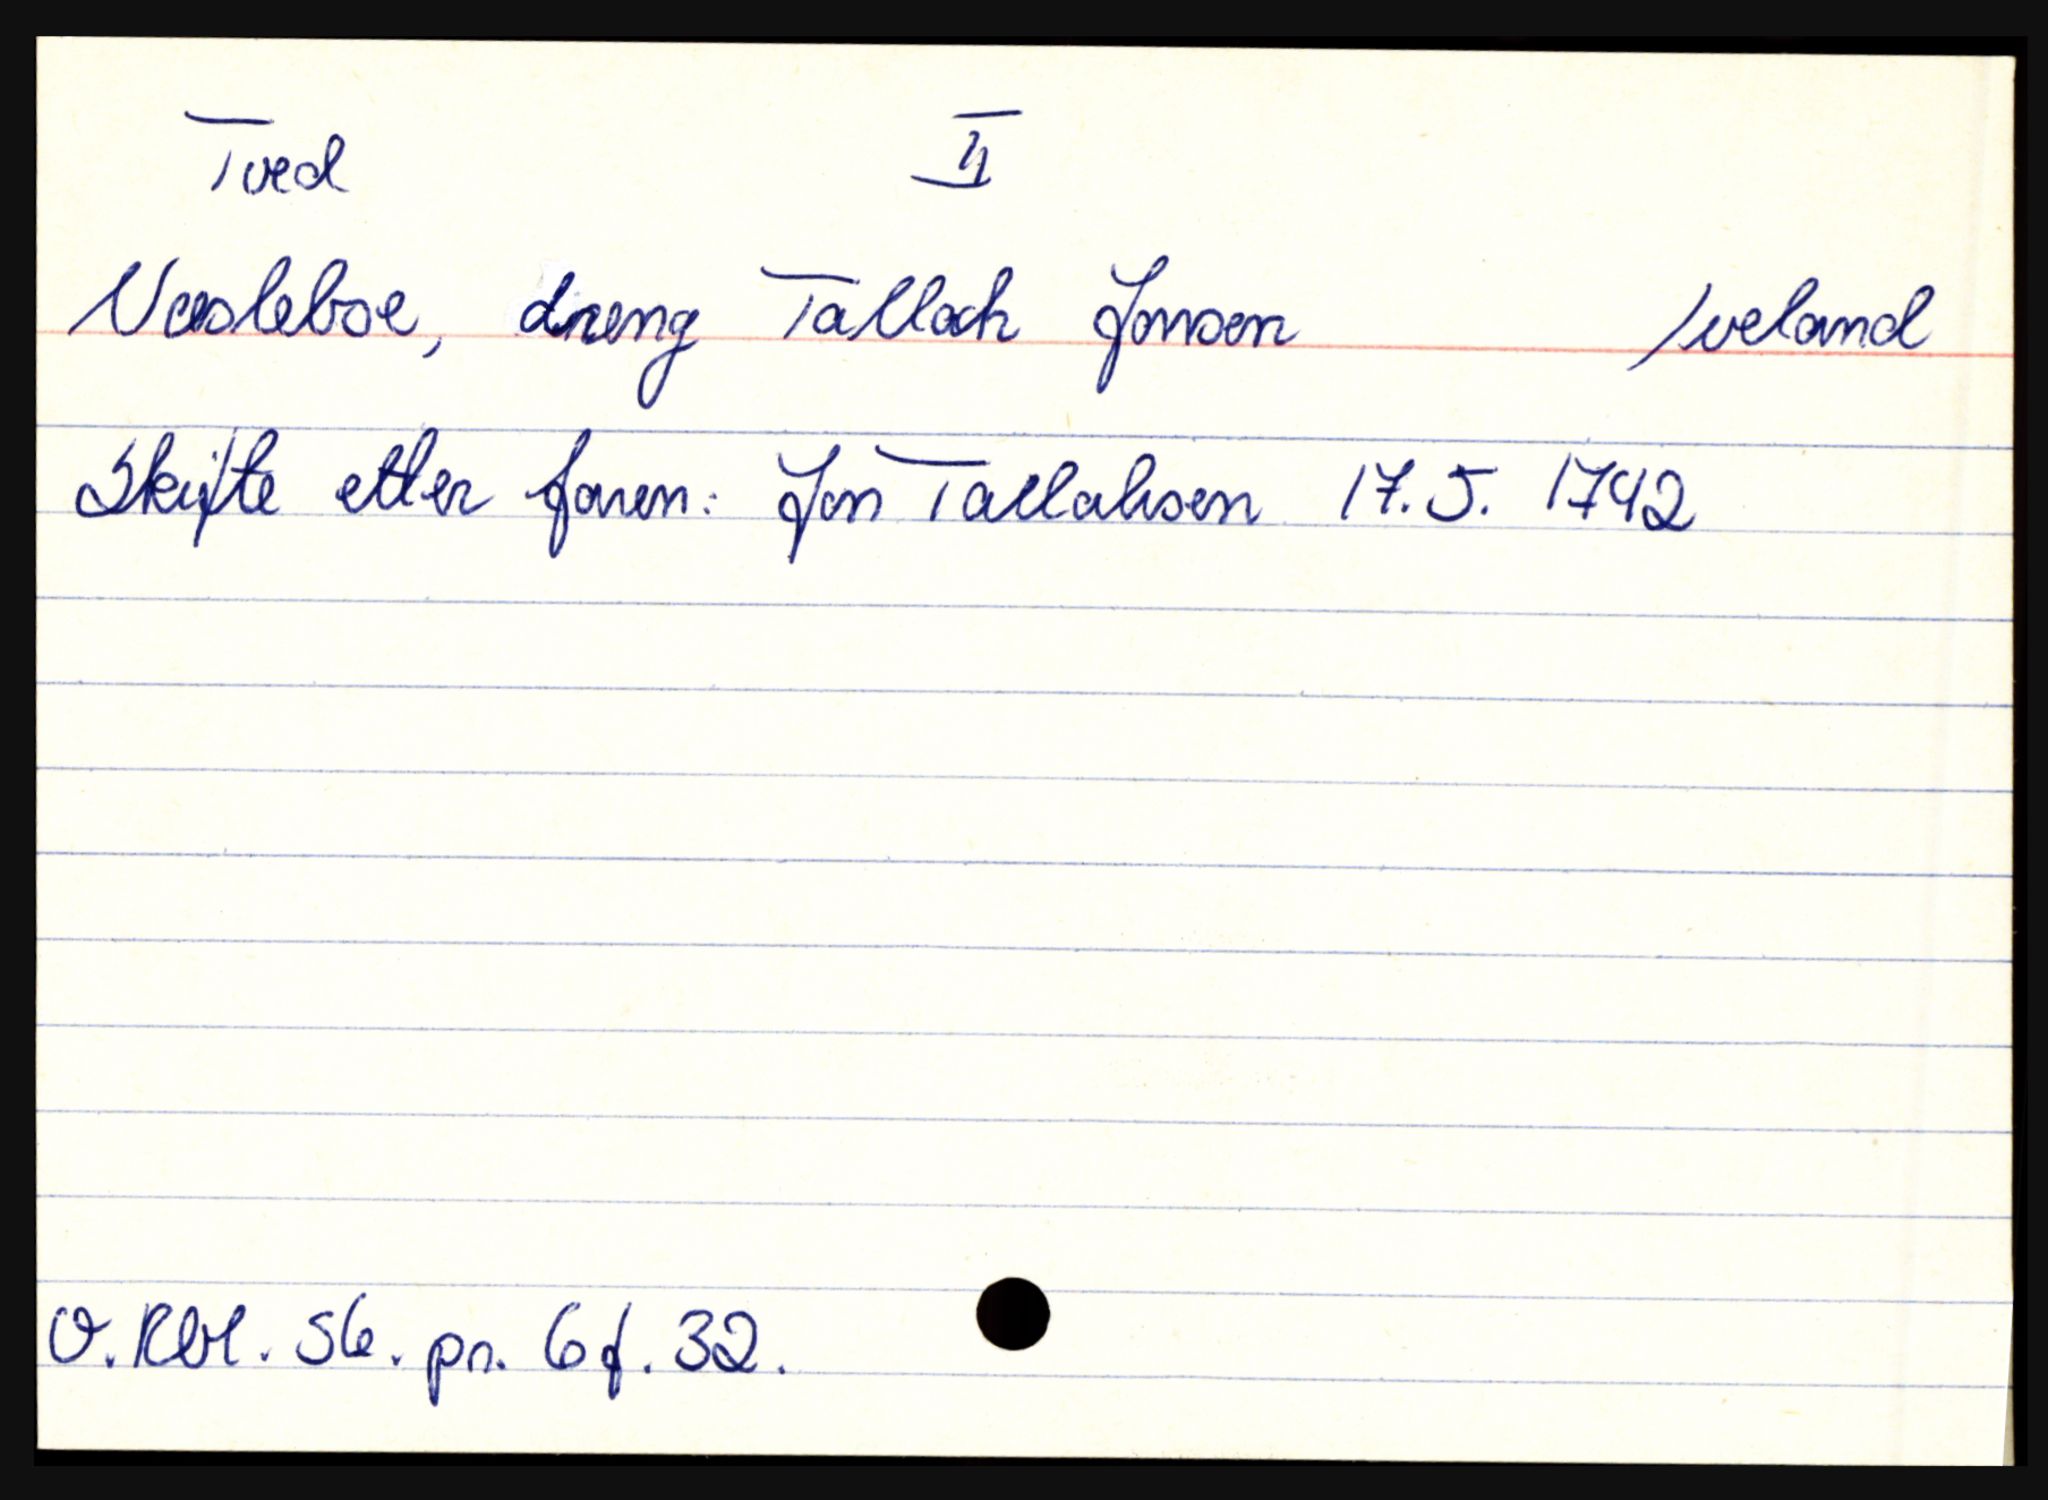 Tved II
Væslebøe, dreng Talloch Jonsen Iveland
Skifte etter faren: Jon Tallaksen 17.5. 1742
O. Rbl. S6. pr. 6 f. 32.